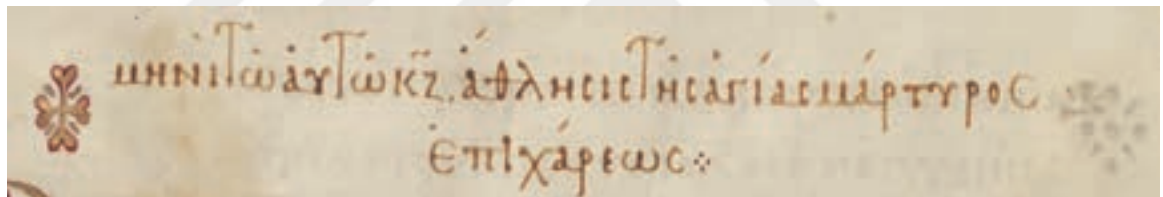 μηνὶ τῶ ἀυτῶ κζ. ἄθλησις τῆς ἁγίας μάρτυρος
ἐπιχάρεως ⁘